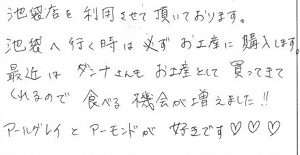 池袋店を利用させて頂いております。
池袋へ行く時は必ずお土産に購入します。
最近はダンナさんもお土産として買ってきて
くれるので食べる機会が増えました!!
アールグレイとアーモンドが好きです♡♡♡